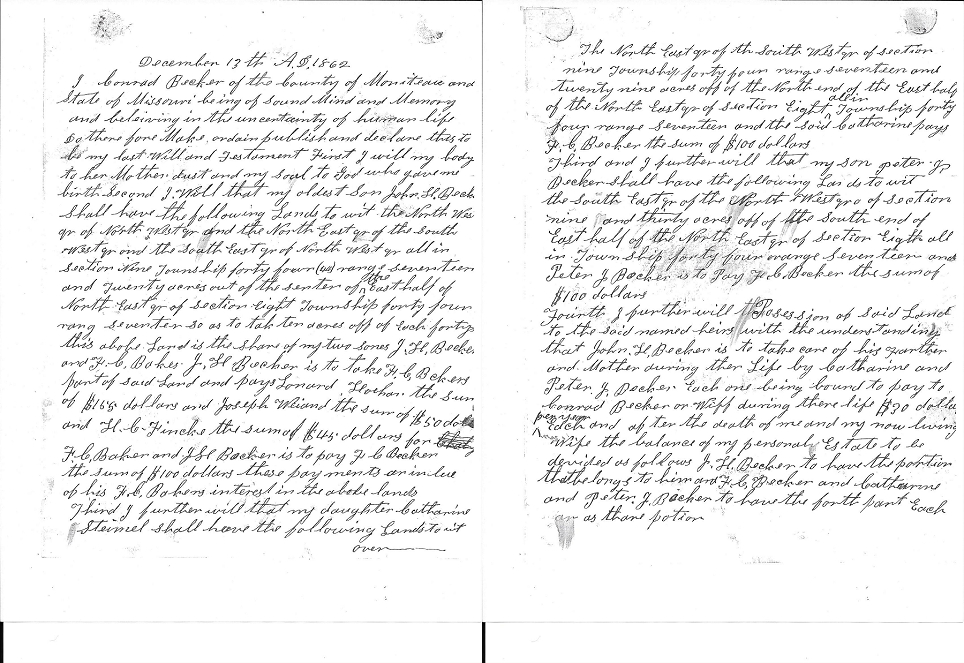 December 13th A.D. 1862
I Conrad Becker of the County of Moniteau and
State of Missouri being of Sound Mind and Memory
and beleiving in the uncertainty of human life
Do there fore Make, ordain publish and declare this to
be my last Will and Testament First I will my body
to her Mother dust and my soul to God who gave me
birth Second I Will that my oldest Son John H. Beck
Shall have the following Lands to wit the North Wes
qr of North West qr and the North East qr of the South
West qr and the South East qr of North West qr all in
section Nine Township forty four (44) range seventeen
and Twenty acres out of the senter of the East half of
North East qr of section Eight Township forty four
rang seventeen so as to take ten acres off of Each fortys
this above Land is the share of my two sones J. H. Becker
and F. C. Baker J. H Becker is to take F. C. Bckers
part of said Land and pays Lonard the sum
of $165 dollars and Joseph Weiand the sum of $50 dolla
and H. C. Fincke the sum of $45 dollars for
F. C, Baker and J H Becker is to pay F C Becker
the sum of $100 dollars these pay ments are in lue
of his F. C, Bakers interest in the above lands
Third I further will that my daughter Catharine
Steimel shall have the following Lands to wit
over
The North East qr of th South West qr of section
nine Township forty four range seventeen and
twenty nine acres off of the North end of the East half
of the North East qr of section Eight all in Township forty
four range seventeen and the said Catharine pays
F. C. Becker the sum of $100 dollars
Third and I further will that my son peter J.
Becker shall have the following Lands to wit
the South East qr of the North West qr of section
nine and thirty acres off of the South end of
East half of the North East qr of section Eighth all
in Town ship forty four range seventeen and
Peter J Becker is to Pay F. C. Becker the sum of
$100 dollars
Fourth I further will Posession of said Land
to the said named heirs with the understanding
that John, H Becker is to take care of his Farther
and Mother during ther Life by Catharine and
Peter J. Becker Each one being bound to pay to
Conrad Becker or Wiff during there life $30 dolla
per year Each and after the death of me and my now living
Wife the balance of my personal Estate to be
devided as follows J. H. Becker to have the portion
that belongs to him and F. C, Becker and Catharine
and Peter. J Becker to have the forth part Each
as thare potion